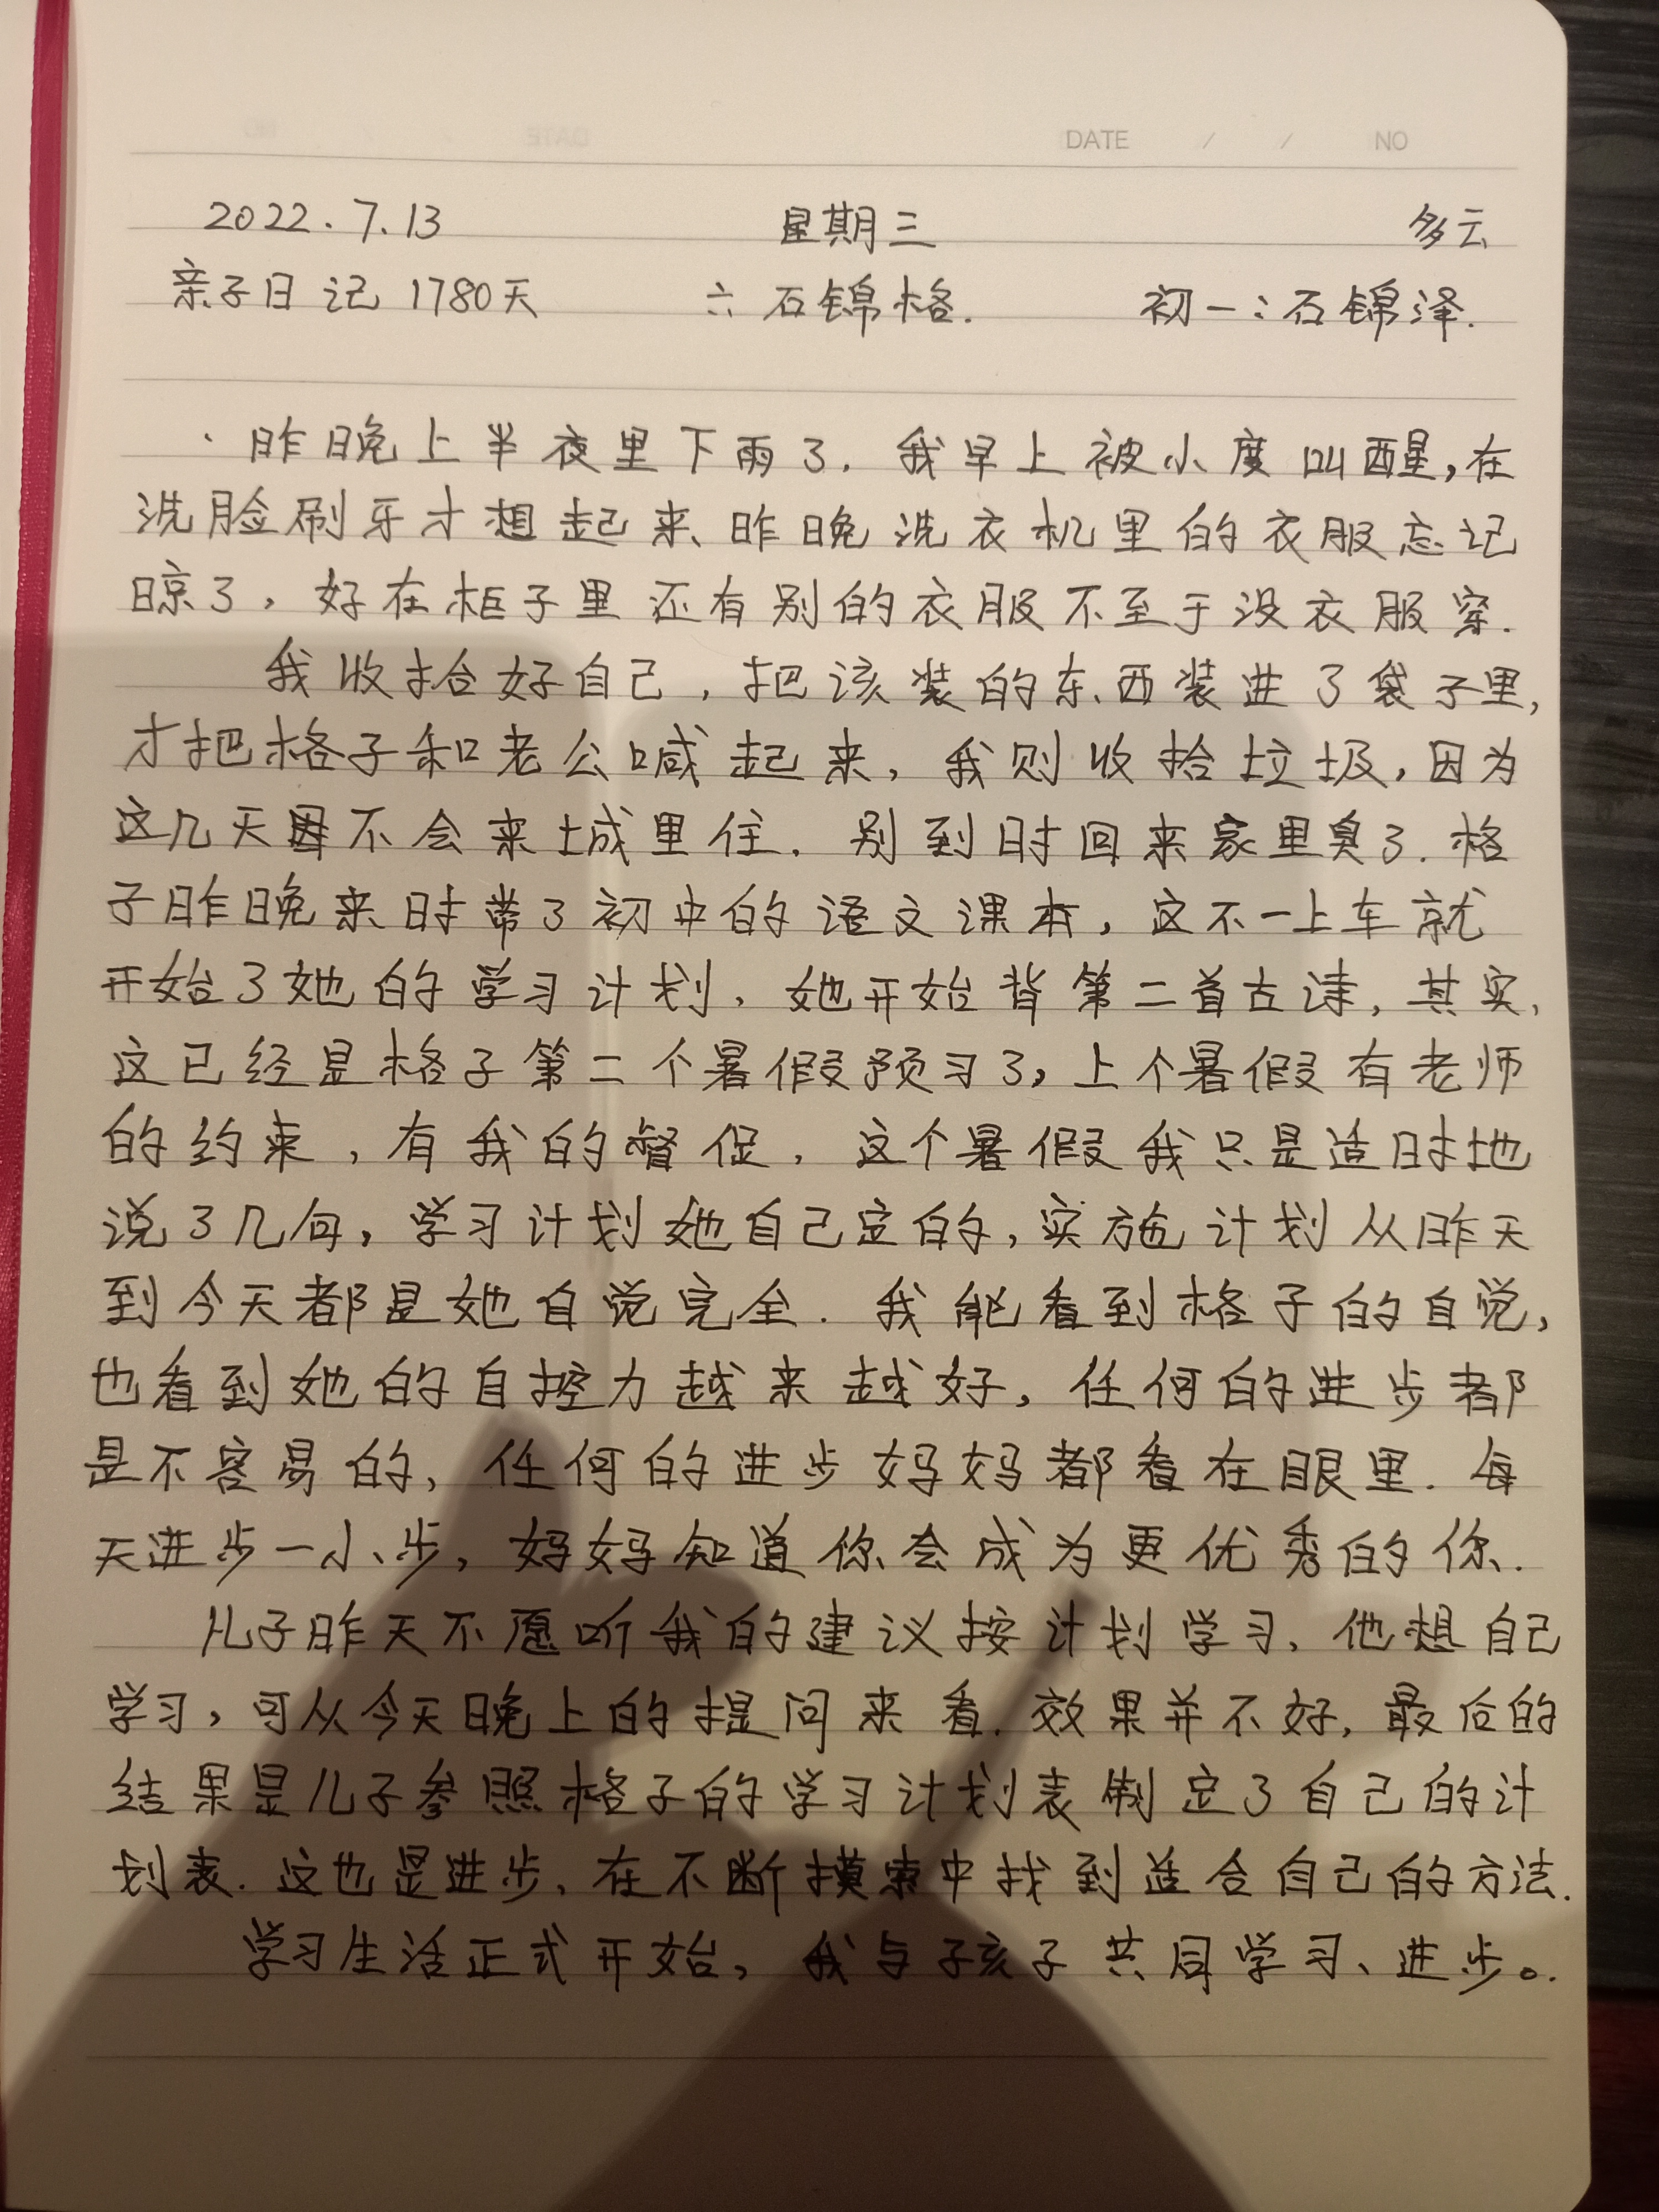 DATE / / NO
2022.7.13 星期三 多云
亲子日记 1780天 六:石锦格. 初一:石锦泽.
昨晚上半夜里下雨了.我早上被小度叫醒,在
洗脸刷牙才想起来、昨晚洗衣机里的衣服忘记
晾了,好在柜子里还有别的衣服不至于没衣服穿.
我收拾好自己,把该装的东西装进了袋子里,
才把格子和老公喊起来,我则收拾垃圾,因为
这几天不会来城里住.别到时回来家里臭了.格
子昨晚来时带了初中的语文课本,这不一上车就
开始了她的学习计划,她开始背第二首古诗,其实,
这已经是格子第二个暑假预习了,上个暑假有老师
的约束,有我的督促,这个暑假我只是适时地
说了几句,学习计划她自己定的,实施计划从昨天
到今天都是她自觉完全.我能看到格子的自觉,
也看到她的自控力越来越好,任何的进步都
是不容易的,任何的进步妈妈都看在眼里.每
天进步一小步,妈妈知道你会成为更优秀的你.
儿子昨天不愿听我的建议按计划学习,他想自己
学习,可从今天晚上的提问来看.效果并不好,最后的
结果是儿子参照格子的学习计划表制定了自己的计
划表.这也是进步,在不断摸索中找到适合自己的方法.
学习生活正式开始,我与孩子共同学习、进步。.